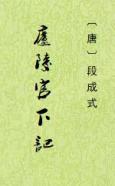 〔唐〕段成式
廬陵官下記